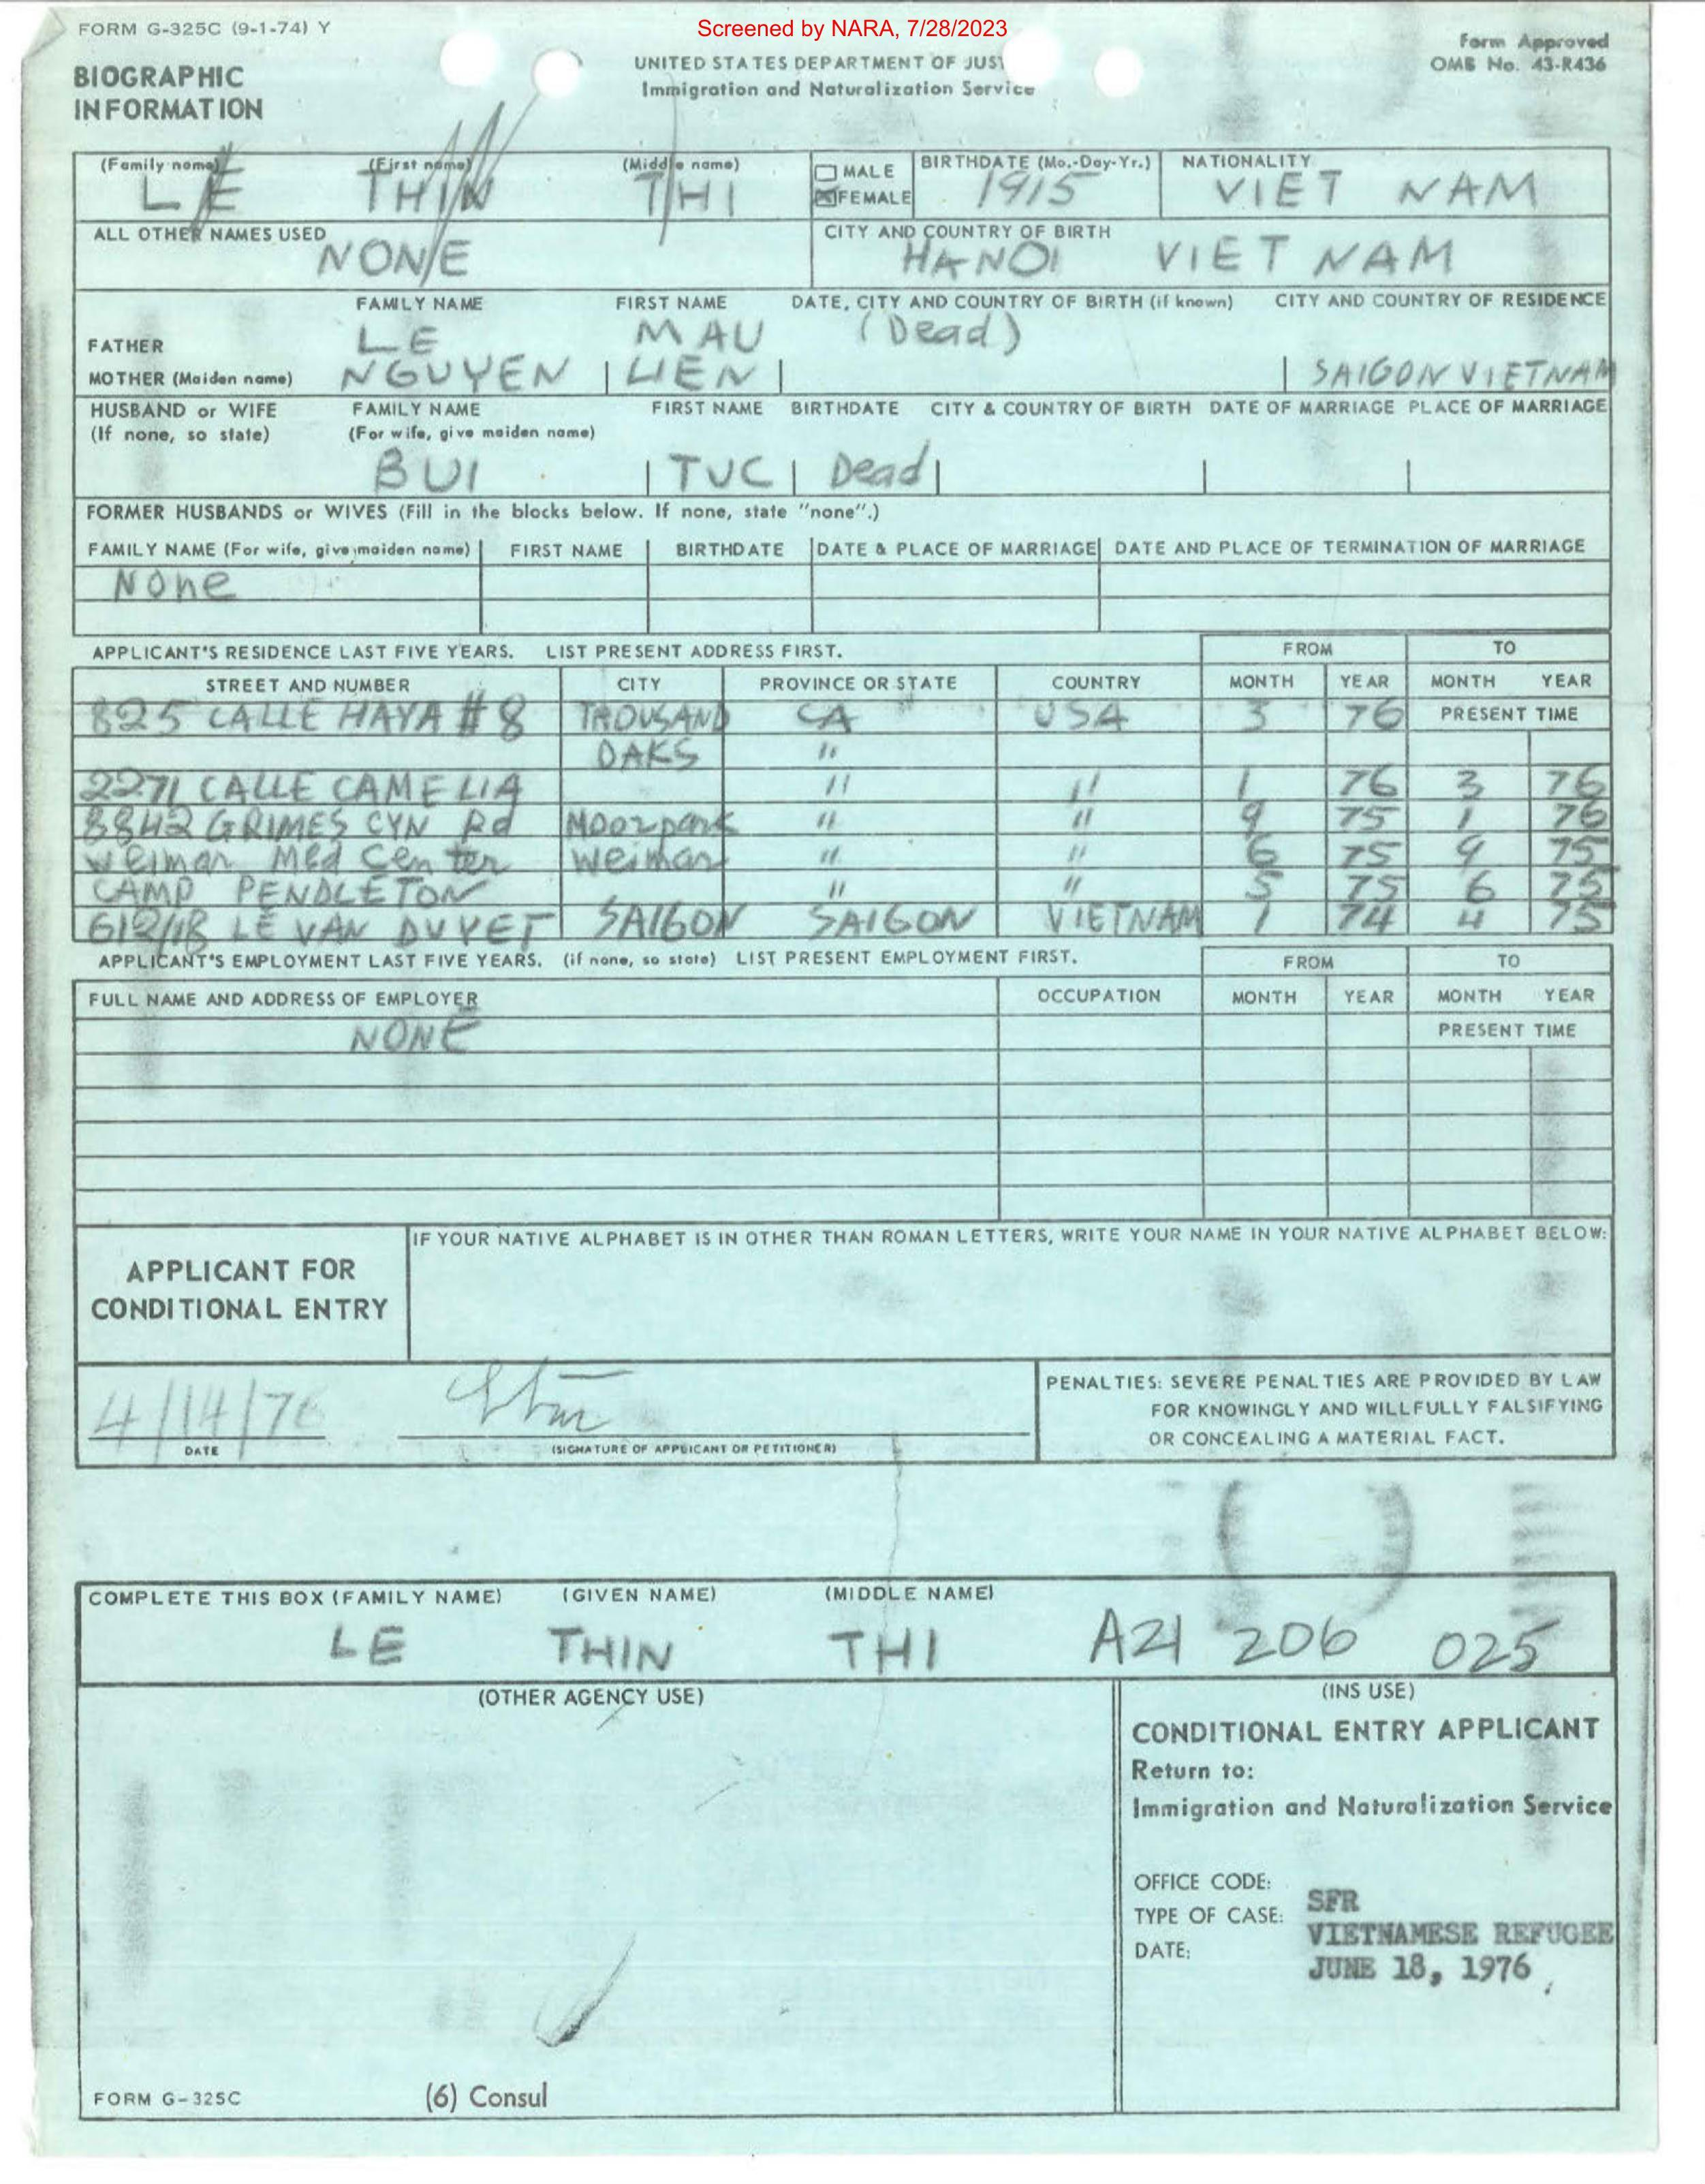 FORM G-325C (9-1-74) Y
Screened by NARA, 7/28/2023
Form Approved
OMB No. 43-R436
BIOGRAPHIC
INFORMATION
UNITED STATES DEPARTMENT OF JUST
Immigration and Naturalization Service
(Family name) (First name) (Middle name) MALE BIRTHDATE (Mo.-Day-Yr.) NATIONALITY
LE THIN THI FEMALE 1915 VIET NAM
ALL OTHER NAMES USED CITY AND COUNTRY OF BIRTH
NONE HANOI VIET NAM
FAMILY NAME FIRST NAME DATE, CITY AND COUNTRY OF BIRTH (if known) CITY AND COUNTRY OF RESIDENCE
FATHER LE MAU (Dead)
MOTHER (Maiden name) NGUYEN LIEN SAIGON VIETNAM
HUSBAND or WIFE FAMILY NAME FIRST NAME BIRTHDATE CITY & COUNTRY OF BIRTH DATE OF MARRIAGE PLACE OF MARRIAGE
(If none, so state) (For wife, give maiden name)
BUI TUC Dead
FORMER HUSBANDS or WIVES (Fill in the blocks below. If none, state "none".)
FAMILY NAME (For wife, give maiden name) FIRST NAME BIRTHDATE DATE & PLACE OF MARRIAGE DATE AND PLACE OF TERMINATION OF MARRIAGE
None
APPLICANT'S RESIDENCE LAST FIVE YEARS. LIST PRESENT ADDRESS FIRST. FROM TO
STREET AND NUMBER CITY PROVINCE OR STATE COUNTRY MONTH YEAR MONTH YEAR
825 CALLE HAYA # 8 THOUSAND CA USA 3 76 PRESENT TIME
OAKS "
2271 CALLE CAMELIA " " 1 76 3 76
8842 GRIMES CYN Rd Moorpark " " 9 75 1 76
Weimar Med Center Weimar " " 6 75 9 75
CAMP PENDLETON " " 5 75 6 75
612/18 LE VAN DUYET SAIGON SAIGON VIETNAM 1 74 4 75
APPLICANT'S EMPLOYMENT LAST FIVE YEARS. (if none, so state) LIST PRESENT EMPLOYMENT FIRST. FROM TO
FULL NAME AND ADDRESS OF EMPLOYER OCCUPATION MONTH YEAR MONTH YEAR
NONE PRESENT TIME
IF YOUR NATIVE ALPHABET IS IN OTHER THAN ROMAN LETTERS, WRITE YOUR NAME IN YOUR NATIVE ALPHABET BELOW:
APPLICANT FOR
CONDITIONAL ENTRY
4/14/76
DATE (SIGNATURE OF APPLICANT OR PETITIONER)
PENALTIES: SEVERE PENALTIES ARE PROVIDED BY LAW
FOR KNOWINGLY AND WILLFULLY FALSIFYING
OR CONCEALING A MATERIAL FACT.
COMPLETE THIS BOX (FAMILY NAME) (GIVEN NAME) (MIDDLE NAME)
LE THIN THI A21 206 025
(OTHER AGENCY USE) (INS USE)
CONDITIONAL ENTRY APPLICANT
Return to:
Immigration and Naturalization Service
OFFICE CODE: SFR
TYPE OF CASE: VIETNAMESE REFUGEE
DATE: JUNE 18, 1976
FORM G-325C (6) Consul